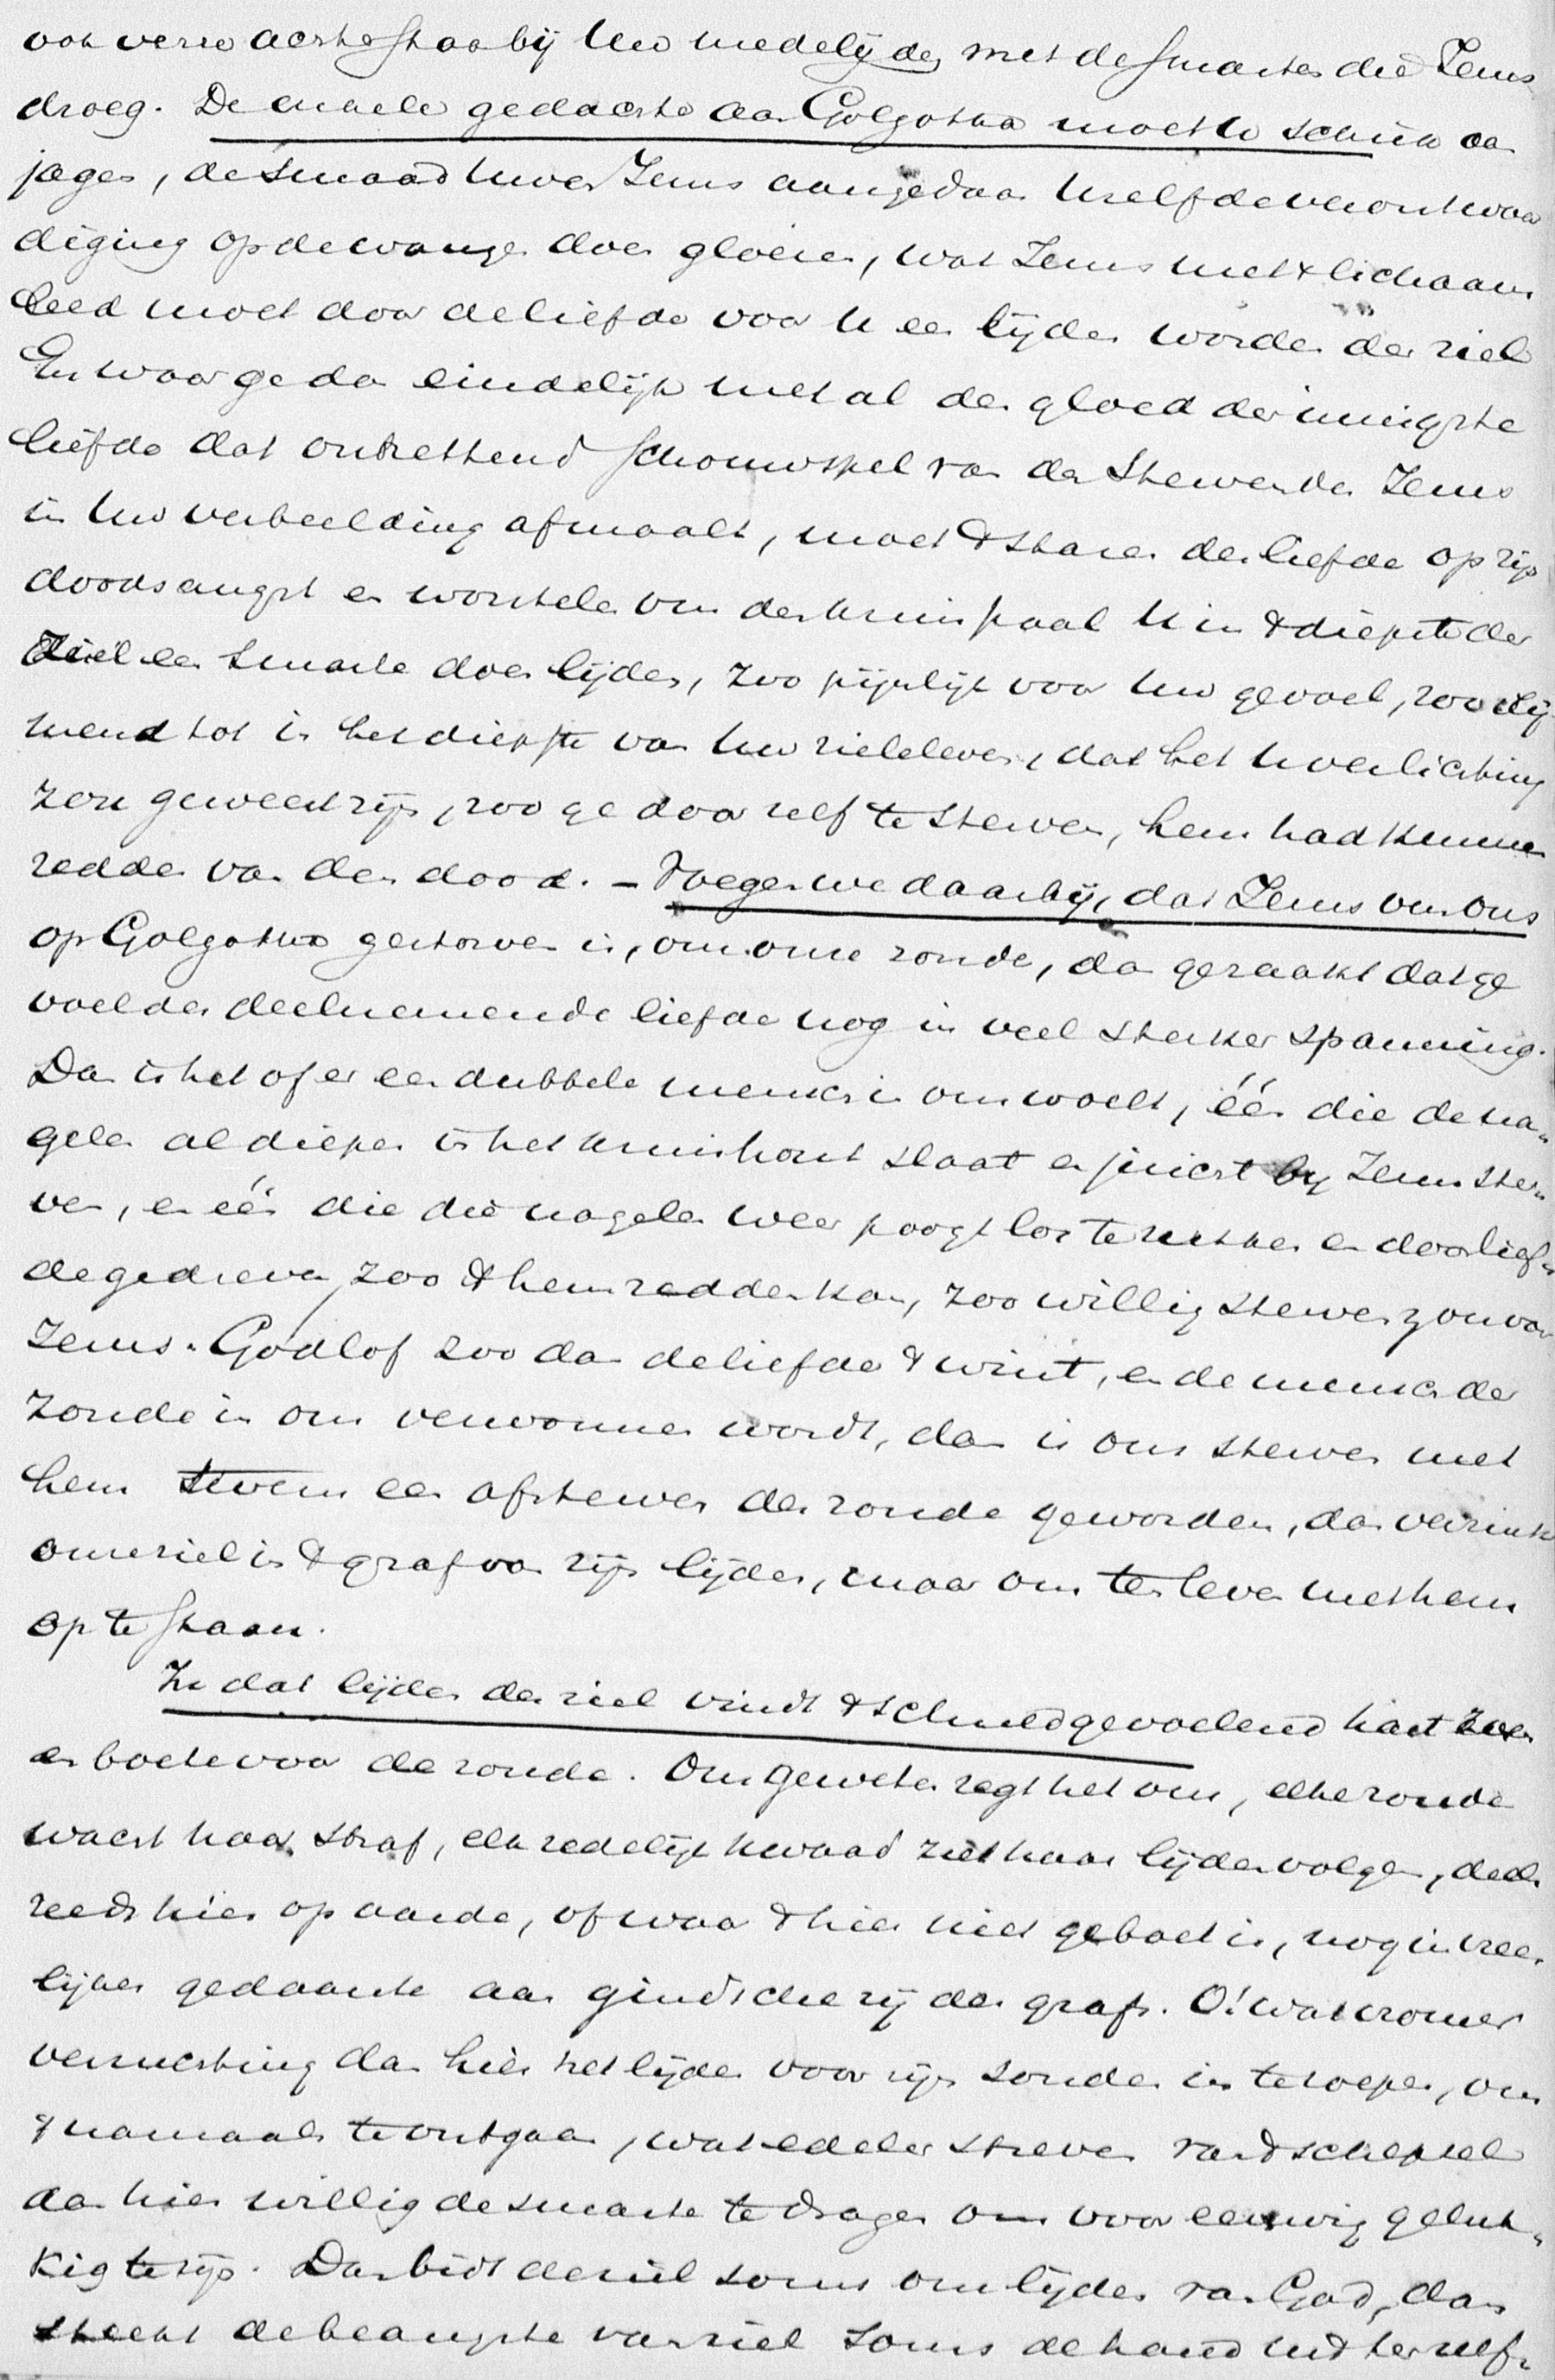 ook verre achterstaa bij Uw medelijden met de smarten die Jezus
droeg. De enkele gedachte aan Golgotha moet U schrik aan
jagen, de smaad Uwen Jezus aangedaan Uzelf de verontwaar
diging op de wangen doen gloeien, wat Jezus met & lichaam
leed moet door de liefde voor U een lijden worden der ziel
En waar ge dan eindelijk met al den gloed der innigste
liefde dat ontzettend schouwspel van den stervenden Jezus
in Uw verbeelding afmaalt, moet & staren der liefde op zijn
doodsangst en worstelen om den kruispaal U in & diepste der
Ziel een smarte doen lijden, zoo pijnlijk voor Uw gevoel, zoo vlij
mend tot in het diepste van Uw zieleleven, dat het U verlichting
zou geweest zijn, zoo ge door zelf te sterven, hem had kunnen
redden van den dood. – Voegen we daarbij, dat Jezus om ons
op Golgotha gestorven is, om onze zonde, dan geraakt dat ge
voel der deelnemende liefde nog in veel sterker spanning.
Dan is het of er een dubbele mensch in ons woelt, één die de na„
gelen al dieper in het kruishout slaat en juicht by Jezus ster„
ven, en één die die nagelen weer poogt los te rukken en door lief„
de gedreven, zoo & hem redden kon, zoo willig sterven zou voor
Jezus. Godlof zoo dan de liefde & wint, en de mensch der
zonde in ons verwonnen wordt, dan is ons sterven met
hem tevens een afsterven der zonde geworden, dan verzinkt
onze ziel in & graf van zijn lijden, maar om ten leven met hem
op te staan.
In dat lijden der ziel vindt & schuldgevoelend hart
en boete voor de zonde. Ons geweten zegt het ons, elke zonde
wacht haar straf, elk zedelijk kwaad ziet haar lijden volgen, deels
reeds hier op aarde, of waar & hier niet geboet is, nog in vree„
lijker gedaante aan gindsche zij des grafs. O! wat vromer
verzuchting dan hier het lijden voor zijn zonden in te roepen, om
& namaals te ontgaan, wat edeler streven van & schepsel
dan hier willig de smarte te dragen om voor eeuwig geluk„
kig te zijn. Dan bidt de ziel soms om lijden van God, dan
steekt de beangste van ziel soms de hand uit & zelf„